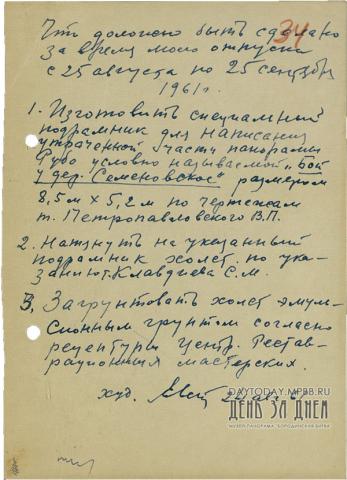 34
Что должно быть сделано
за время моего отпуска
с 25 августа по 25 сентября
1961 г.
1. Изготовить специальный
подрамник для написания
утраченной части панорамы
Рубо условно называемой „Бой
у дер. Семеновское" размером
8,5 м х 5,2 м по чертежам
т. Петропавловского В.П.
2. Натянуть на указанный
подрамник холст, по ука-
занию т. Клавдиева С.М.
3. Загрунтовать холст эмуль-
сионным грунтом согласно
рецептуры Центр. Рестав-
рационных мастерских.
худ.
DAYTODAY.MPBB.RU
ДЕНЬ ЗА ДНЕМ
МУЗЕЙ-ПАНОРАМА "БОРОДИНСКАЯ БИТВА"